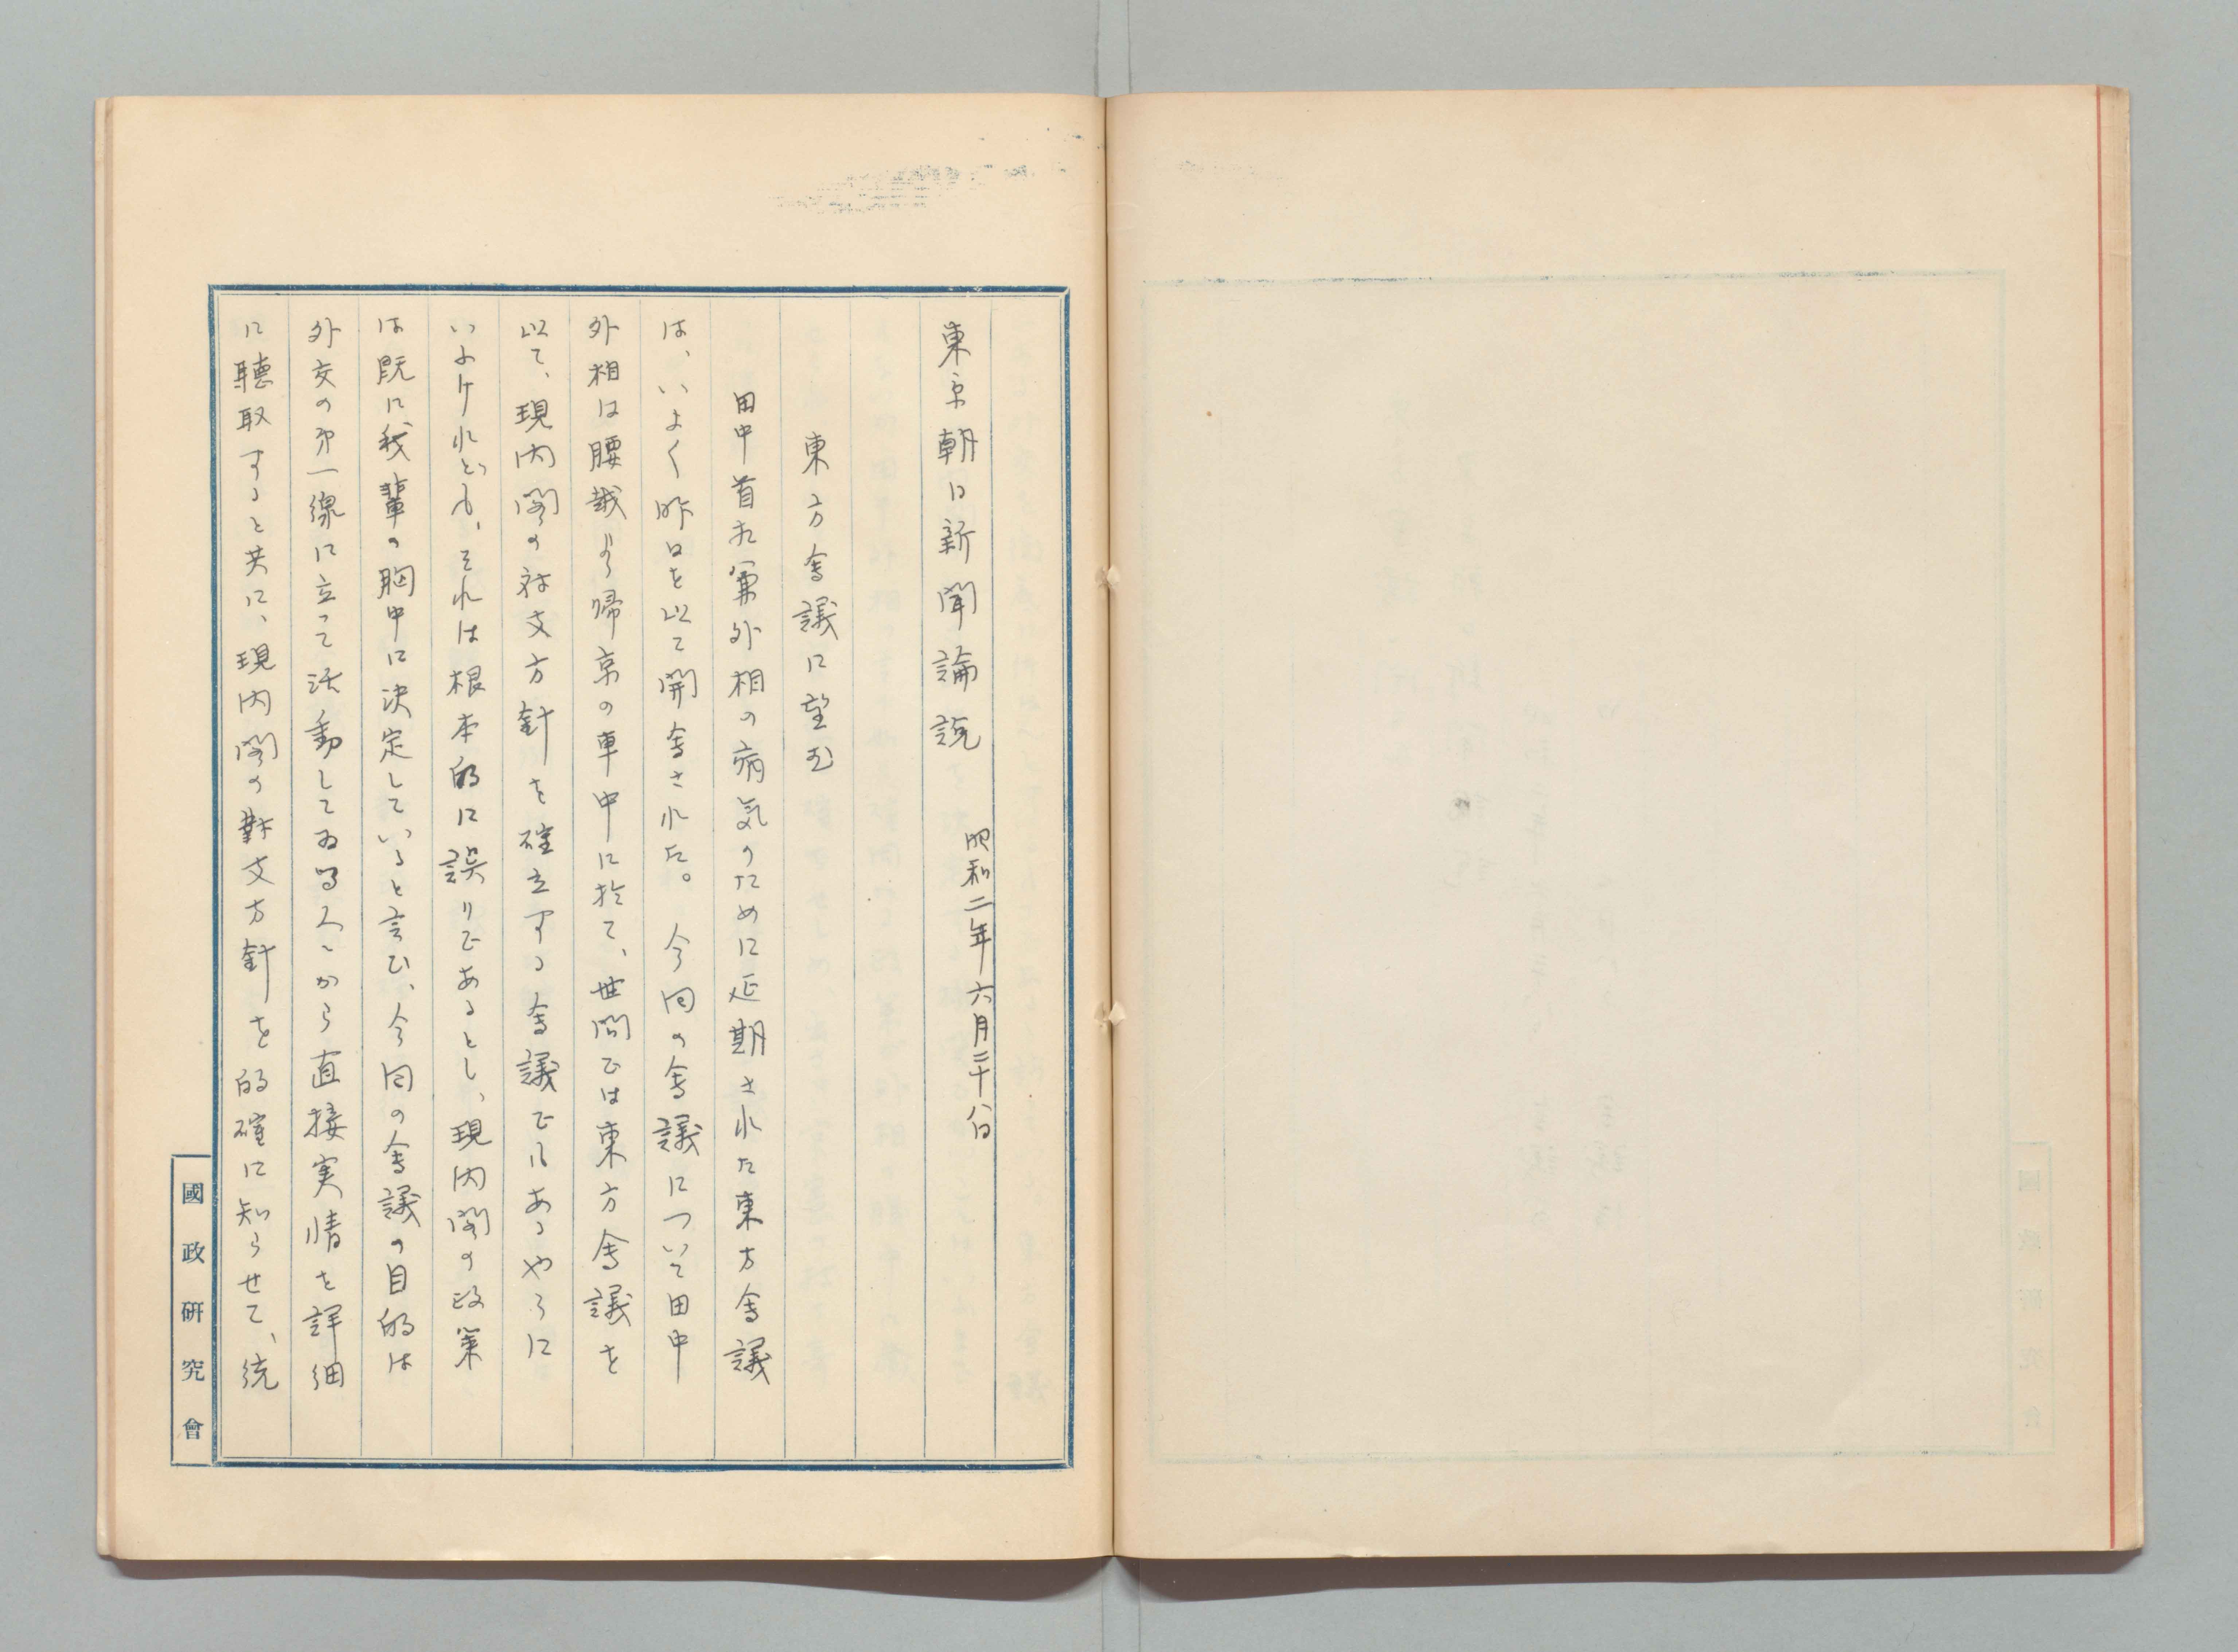 東京朝日新聞論説　昭和二年六月二十八日
東方會議に望む
田中首相兼外相の病気のために延期された東方會議
は、いよ〱昨日を以て開會された。今回の會議について田中
外相は腰越より帰京の車中に於て、世間では東方會議を
以て、現内閣の対支方針を確立する會議でもあるやうに
いふけれども、それは根本的に誤りであるとし、現内閣の政策
は既に我輩の胸中に決定していると言ひ、今回の會議の目的は
外交の第一線に立って活動してゐる人々から直接実情を詳細
に聴取すると共に、現内閣の對支方針を的確に知らせて、統
國政研究會